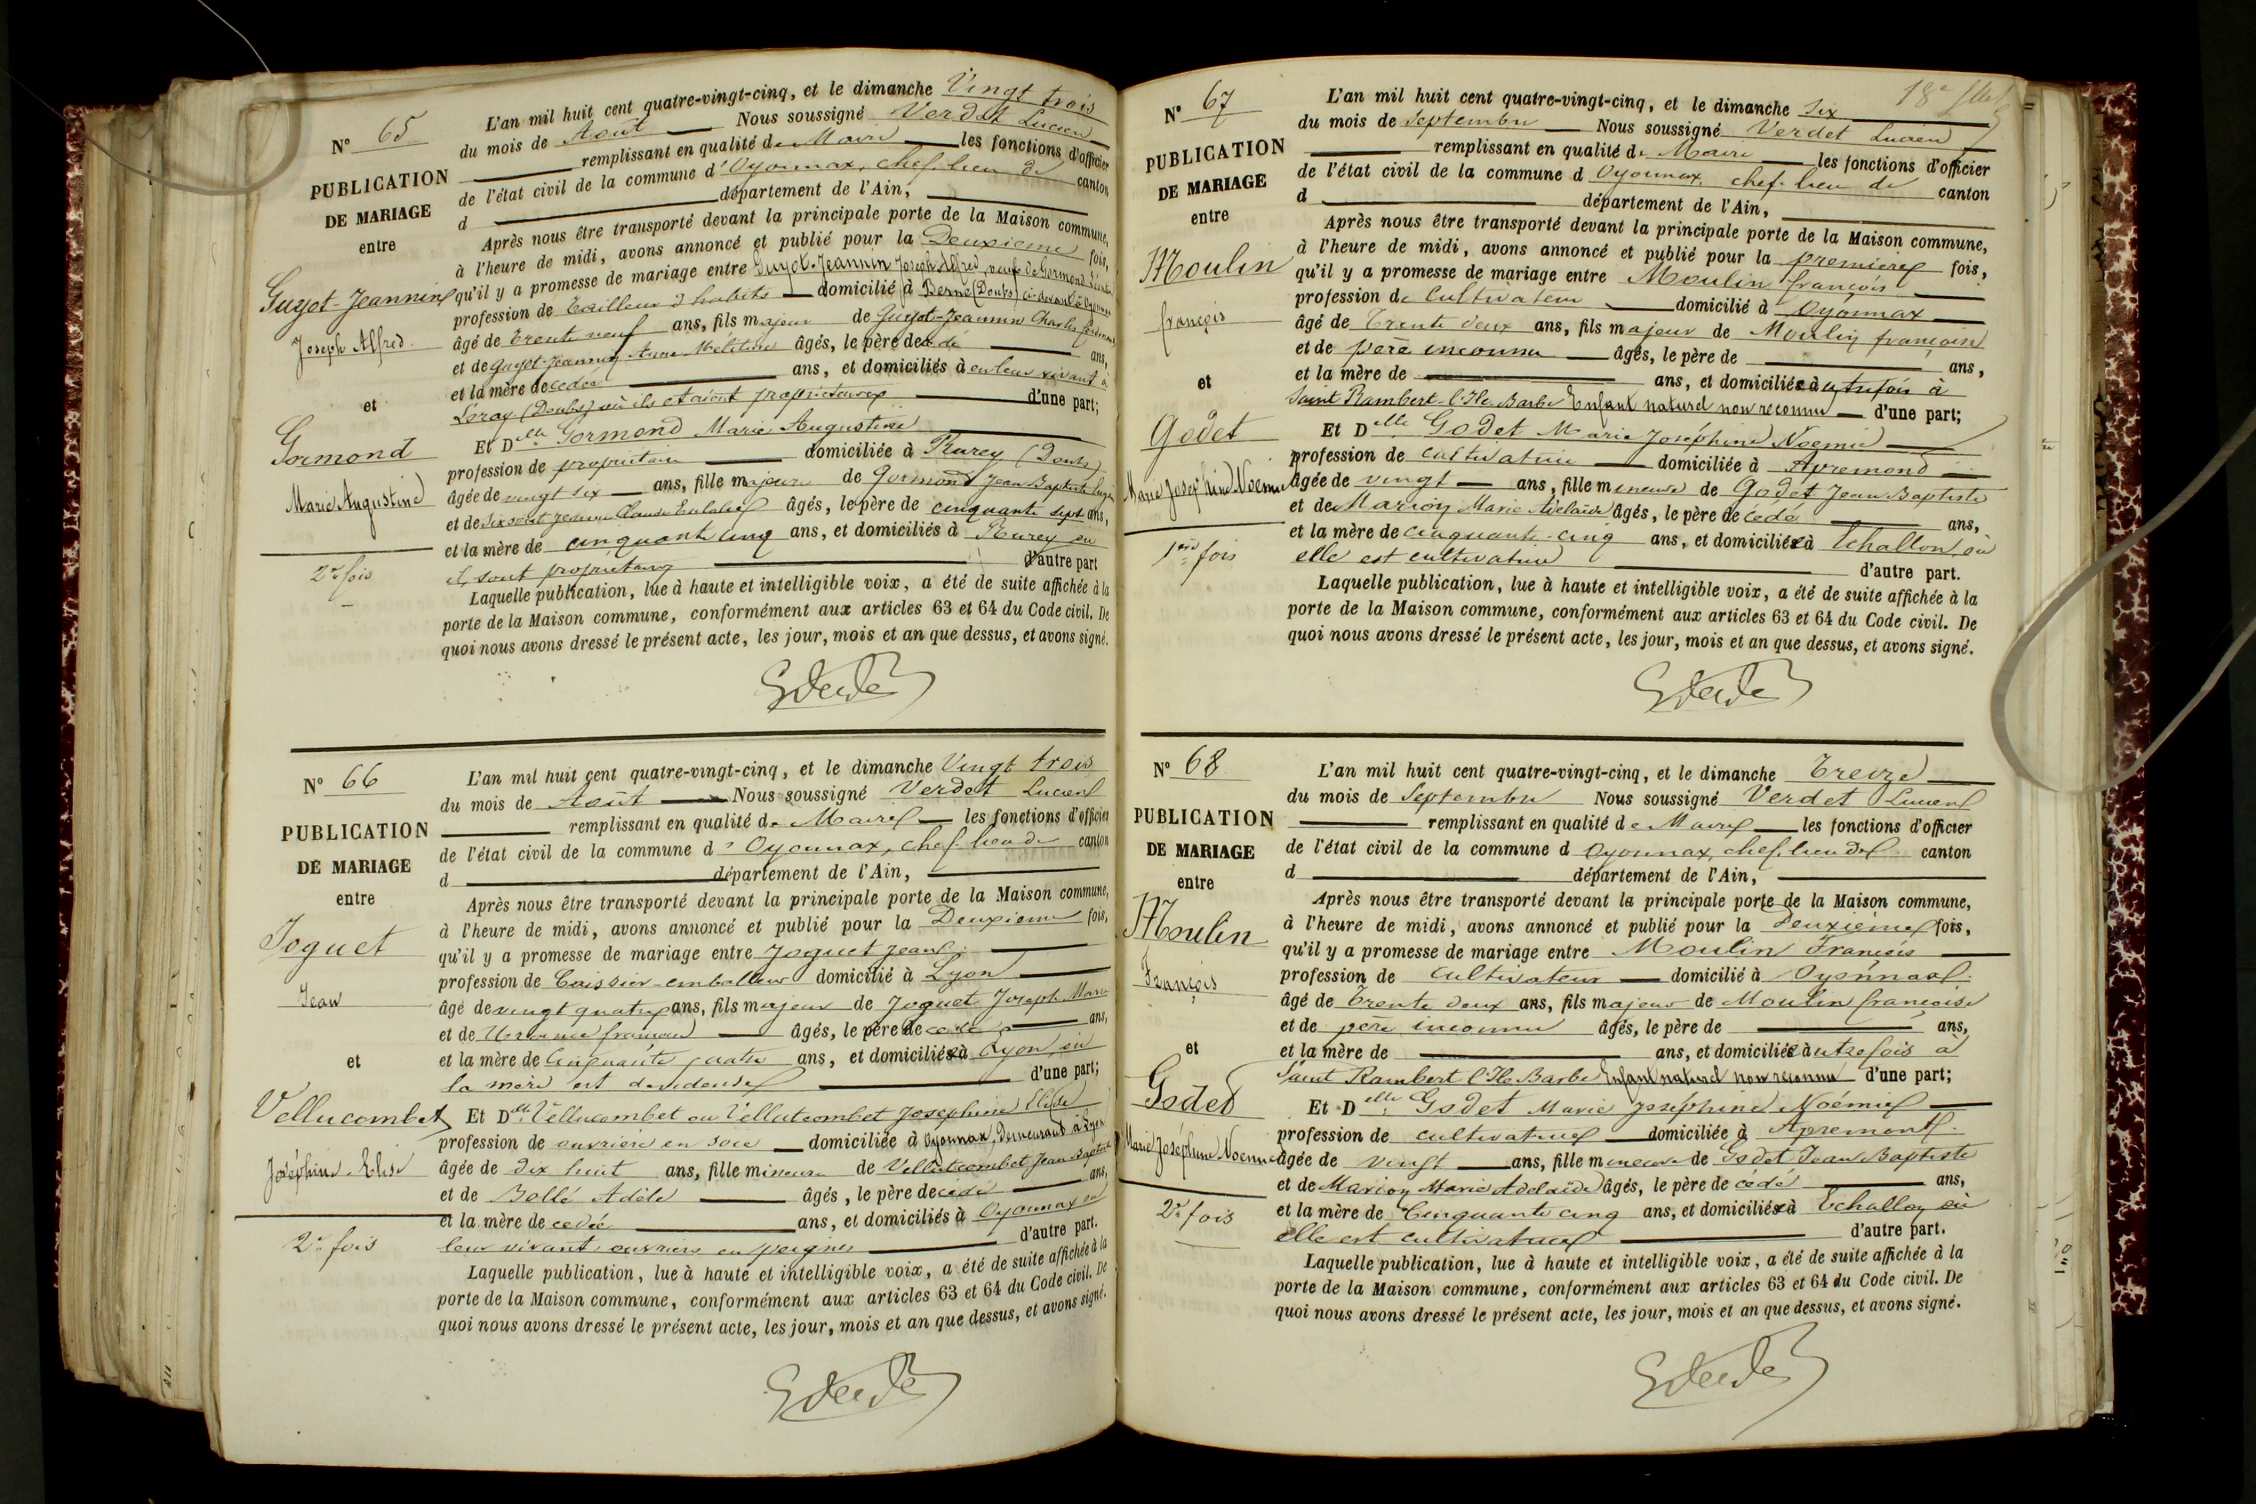 N° 65
PUBLICATION
DE MARIAGE
entre
Guyot-Jeannin
Joseph Alfred
et
Gormond
Marie Augustine
2e fois
L'an mil huit cent quatre-vingt-cinq, et le dimanche Vingt trois
du mois de Août Nous soussigné Verdet Lucien
remplissant en qualité de Maire les fonctions d'officier
de l'état civil de la commune d'Oyonnax, chef-lieu de canton
d département de l'Ain,
Après nous être transporté devant la principale porte de la Maison commune,
à l'heure de midi, avons annoncé et publié pour la Deuxième fois,
qu'il y a promesse de mariage entre Guyot-Jeannin Joseph Alfred, veuf de Gormond
profession de Tailleur d'habits domicilié à (Doubs) ci-devant à Oyonnax
âgé de trente neuf ans, fils majeur de Guyot-Jeannin Charles
et de Guyot-Jeannin Anne âgés, le père décédé ans,
et la mère décédée ans, et domiciliés à en leur vivant à
Loray (Doubs) où ils étaient propriétaires d'une part;
Et Delle Gormond Marie Augustine
profession de propriétaire domiciliée à Plurey (Doubs)
âgée de vingt six ans, fille majeure de Gormond Jean Baptiste
et de Eulalie âgés, le père de cinquante sept ans,
et la mère de cinquante cinq ans, et domiciliés à Plurey où
ils sont propriétaires d'autre part
Laquelle publication, lue à haute et intelligible voix, a été de suite affichée à la
porte de la Maison commune, conformément aux articles 63 et 64 du Code civil. De
quoi nous avons dressé le présent acte, les jour, mois et an que dessus, et avons signé.
N° 66
PUBLICATION
DE MARIAGE
entre
Joguet
Jean
et
Vellucombet
Joséphine Elise
2e fois
L'an mil huit cent quatre-vingt-cinq, et le dimanche Vingt trois
du mois de Août Nous soussigné Verdet Lucien
remplissant en qualité de Maire les fonctions d'officier
de l'état civil de la commune d'Oyonnax, chef-lieu de canton
d département de l'Ain,
Après nous être transporté devant la principale porte de la Maison commune,
à l'heure de midi, avons annoncé et publié pour la Deuxième fois,
qu'il y a promesse de mariage entre Joguet Jean
profession de Caissier-emballeur domicilié à Lyon
âgé de vingt quatre ans, fils majeur de Joguet Joseph Marie
et de âgés, le père décédé ans,
et la mère de Cinquante quatre ans, et domiciliée à Lyon où
la mère est dévideuse d'une part;
Et Delle Vellucombet ou Vellutcombet Joséphine Elise
profession de ouvrière en soie domiciliée à Oyonnax, Demeurant à Lyon
âgée de dix huit ans, fille mineure de Vellutcombet Jean Baptiste
et de Bollé Adèle âgés, le père décédé ans,
et la mère décédée ans, et domiciliés à Oyonnax en
leur vivant ouvriers en peignes d'autre part.
Laquelle publication, lue à haute et intelligible voix, a été de suite affichée à la
porte de la Maison commune, conformément aux articles 63 et 64 du Code civil. De
quoi nous avons dressé le présent acte, les jour, mois et an que dessus, et avons signé.
N° 67
PUBLICATION
DE MARIAGE
entre
Moulin
françois
et
Godet
Marie Joséphine Noémie
1ère fois
L'an mil huit cent quatre-vingt-cinq, et le dimanche six
du mois de Septembre Nous soussigné Verdet Lucien
remplissant en qualité de Maire les fonctions d'officier
de l'état civil de la commune d Oyonnax, chef-lieu de canton
d département de l'Ain,
Après nous être transporté devant la principale porte de la Maison commune,
à l'heure de midi, avons annoncé et publié pour la première fois,
qu'il y a promesse de mariage entre Moulin françois
profession de Cultivateur domicilié à Oyonnax
âgé de Trente deux ans, fils majeur de Moulin françoise
et de père inconnu âgés, le père de ans,
et la mère de ans, et domiciliée autrefois à
Saint Rambert l'Ile Barbe Enfant naturel non reconnu d'une part;
Et Delle Godet Marie Joséphine Noémie
profession de cultivatrice domiciliée à Apremond
âgée de vingt ans, fille mineure de Godet Jean Baptiste
et de Marion Marie Adelaïde âgés, le père décédé ans,
et la mère de cinquante-cinq ans, et domiciliée à Echallon où
elle est cultivatrice d'autre part.
Laquelle publication, lue à haute et intelligible voix, a été de suite affichée à la
porte de la Maison commune, conformément aux articles 63 et 64 du Code civil. De
quoi nous avons dressé le présent acte, les jour, mois et an que dessus, et avons signé.
N° 68
PUBLICATION
DE MARIAGE
entre
Moulin
François
et
Godet
Marie Joséphine Noemie
2e fois
L'an mil huit cent quatre-vingt-cinq, et le dimanche Treize
du mois de Septembre Nous soussigné Verdet Lucien
remplissant en qualité de Maire les fonctions d'officier
de l'état civil de la commune d Oyonnax, chef-lieu de canton
d département de l'Ain,
Après nous être transporté devant la principale porte de la Maison commune,
à l'heure de midi, avons annoncé et publié pour la Deuxième fois,
qu'il y a promesse de mariage entre Moulin François
profession de cultivateur domicilié à Oyonnax
âgé de Trente deux ans, fils majeur de Moulin françoise
et de père inconnu âgés, le père de ans,
et la mère de ans, et domiciliée autrefois à
Saint Rambert l'Ile Barbe Enfant naturel non reconnu d'une part;
Et Delle Godet Marie Joséphine Noémie
profession de cultivatrice domiciliée à Apremont
âgée de vingt ans, fille mineure de Godet Jean Baptiste
et de Marion Marie Adelaïde âgés, le père décédé ans,
et la mère de Cinquante cinq ans, et domiciliée à Echallon où
elle est cultivatrice d'autre part.
Laquelle publication, lue à haute et intelligible voix, a été de suite affichée à la
porte de la Maison commune, conformément aux articles 63 et 64 du Code civil. De
quoi nous avons dressé le présent acte, les jour, mois et an que dessus, et avons signé.